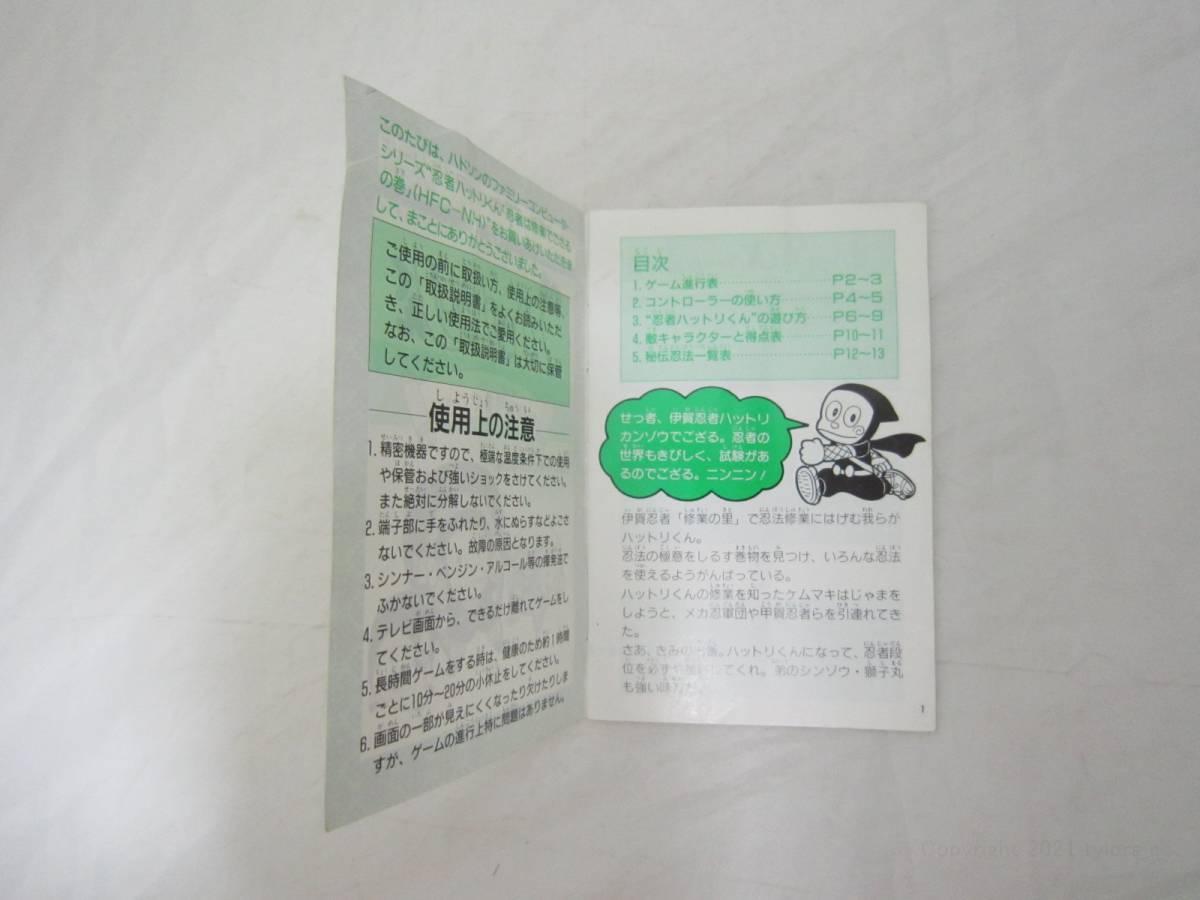 このたびは、ハドソンのファミリーコンピュータ
シリーズ“忍者ハットリくん「忍者は修業でござる
の巻」(HFC-NH)”をお買いあげいただきま
して、まことにありがとうございました。
ご使用の前に取扱い方、使用上の注意等、
この「取扱説明書」をよくお読みいただ
き、正しい使用法でご愛用ください。
なお、この「取扱説明書」は大切に保管
してください。
使用上の注意
1. 精密機器ですので、極端な温度条件下での使用
や保管および強いショックをさけてください。
また絶対に分解しないでください。
2. 端子部に手をふれたり、水にぬらすなどよごさ
ないでください。故障の原因となります。
3. シンナー・ベンジン・アルコール等の揮発油で
ふかないでください。
4. テレビ画面から、できるだけ離れてゲームをし
てください。
5. 長時間ゲームをする時は、健康のため約1時間
ごとに10分〜20分の小休止をしてください。
6. 画面の一部が見えにくくなったり欠けたりしま
すが、ゲームの進行上特に問題はありません。
目次
1. ゲーム進行表 P2〜3
2. コントローラーの使い方 P4〜5
3. “忍者ハットリくん”の遊び方 P6〜9
4. 敵キャラクターと得点表 P10〜11
5. 秘伝忍法一覧表 P12〜13
せっ者、伊賀忍者ハットリ
カンゾウでござる。忍者の
世界もきびしく、試験があ
るのでござる。ニンニン!
伊賀忍者「修業の里」で忍法修業にはげむ我らが
ハットリくん。
忍法の極意をしるす巻物を見つけ、いろんな忍法
を使えるようがんばっている。
ハットリくんの修業を知ったケムマキはじゃまを
しようと、メカ忍軍団や甲賀忍者らを引連れてき
た。
さあ、きみの出番。ハットリくんになって、忍者段
位を必ずや してくれ。弟のシンゾウ・獅子丸
も強い味方だ。
1
Copyright 2021